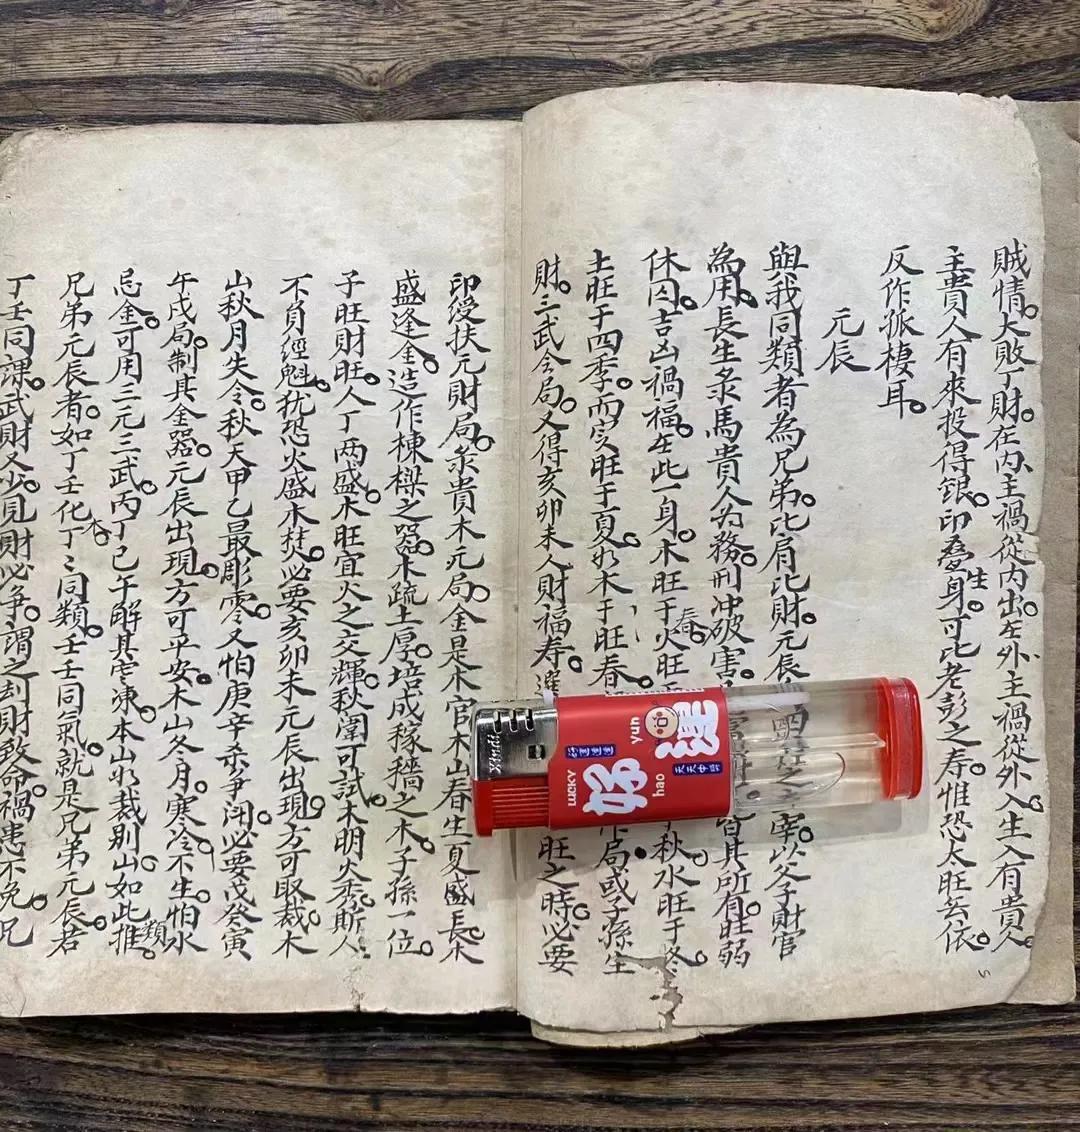 賊情。大敗丁財。在内。主禍從内出。在外。主禍從外入。生入有貴人
主貴人有來投得銀。印叠生身。可比老彭之寿。惟恐太旺無依。
反作孤棲耳。
元辰
與我同類者為兄弟。比肩比財。元辰 之宰。以父子財官
為用。長生彔馬貴人为務。刑冲破害。 皆其所。有旺弱
休囚。吉凶禍福在此一身。木旺于春。火旺 秋。水旺于冬。
土旺于四季。而亥旺于夏。如木于旺春。 局。或子孫生
財。三武会局。又得亥卯未人財福寿。 旺之時。必要
印绶扶元財局。彔貴木元局。金是木官。木山春生夏盛長。木
盛逢金。造作棟樑之器。木疏土厚。培成稼穡之木。子孫一位。
子旺財旺。人丁两盛。木旺宜火之交輝。秋闈可試。木明火秀。斯人
不負經魁。犹恐火盛木焚。必要亥卯未元辰出現。方可取裁。木
山秋月失令。秋天甲乙最彫零。又怕庚辛杀争闹。必要戊癸寅
午戌局。制其金器。元辰出現。方可平安。木山冬月。寒冷不生。怕水
忌金。可用三元三武。丙丁巳午解其寒凍。本山如裁别山。如此類推。
兄弟元辰者。如丁壬化木。丁丁同類。壬壬同氣。就是兄弟元辰。若
丁壬同課。武財又少。見財必争。謂之刦財致命。禍患不免。兄
LUCKY
好運
hao
yun
天天中奖
Xindi